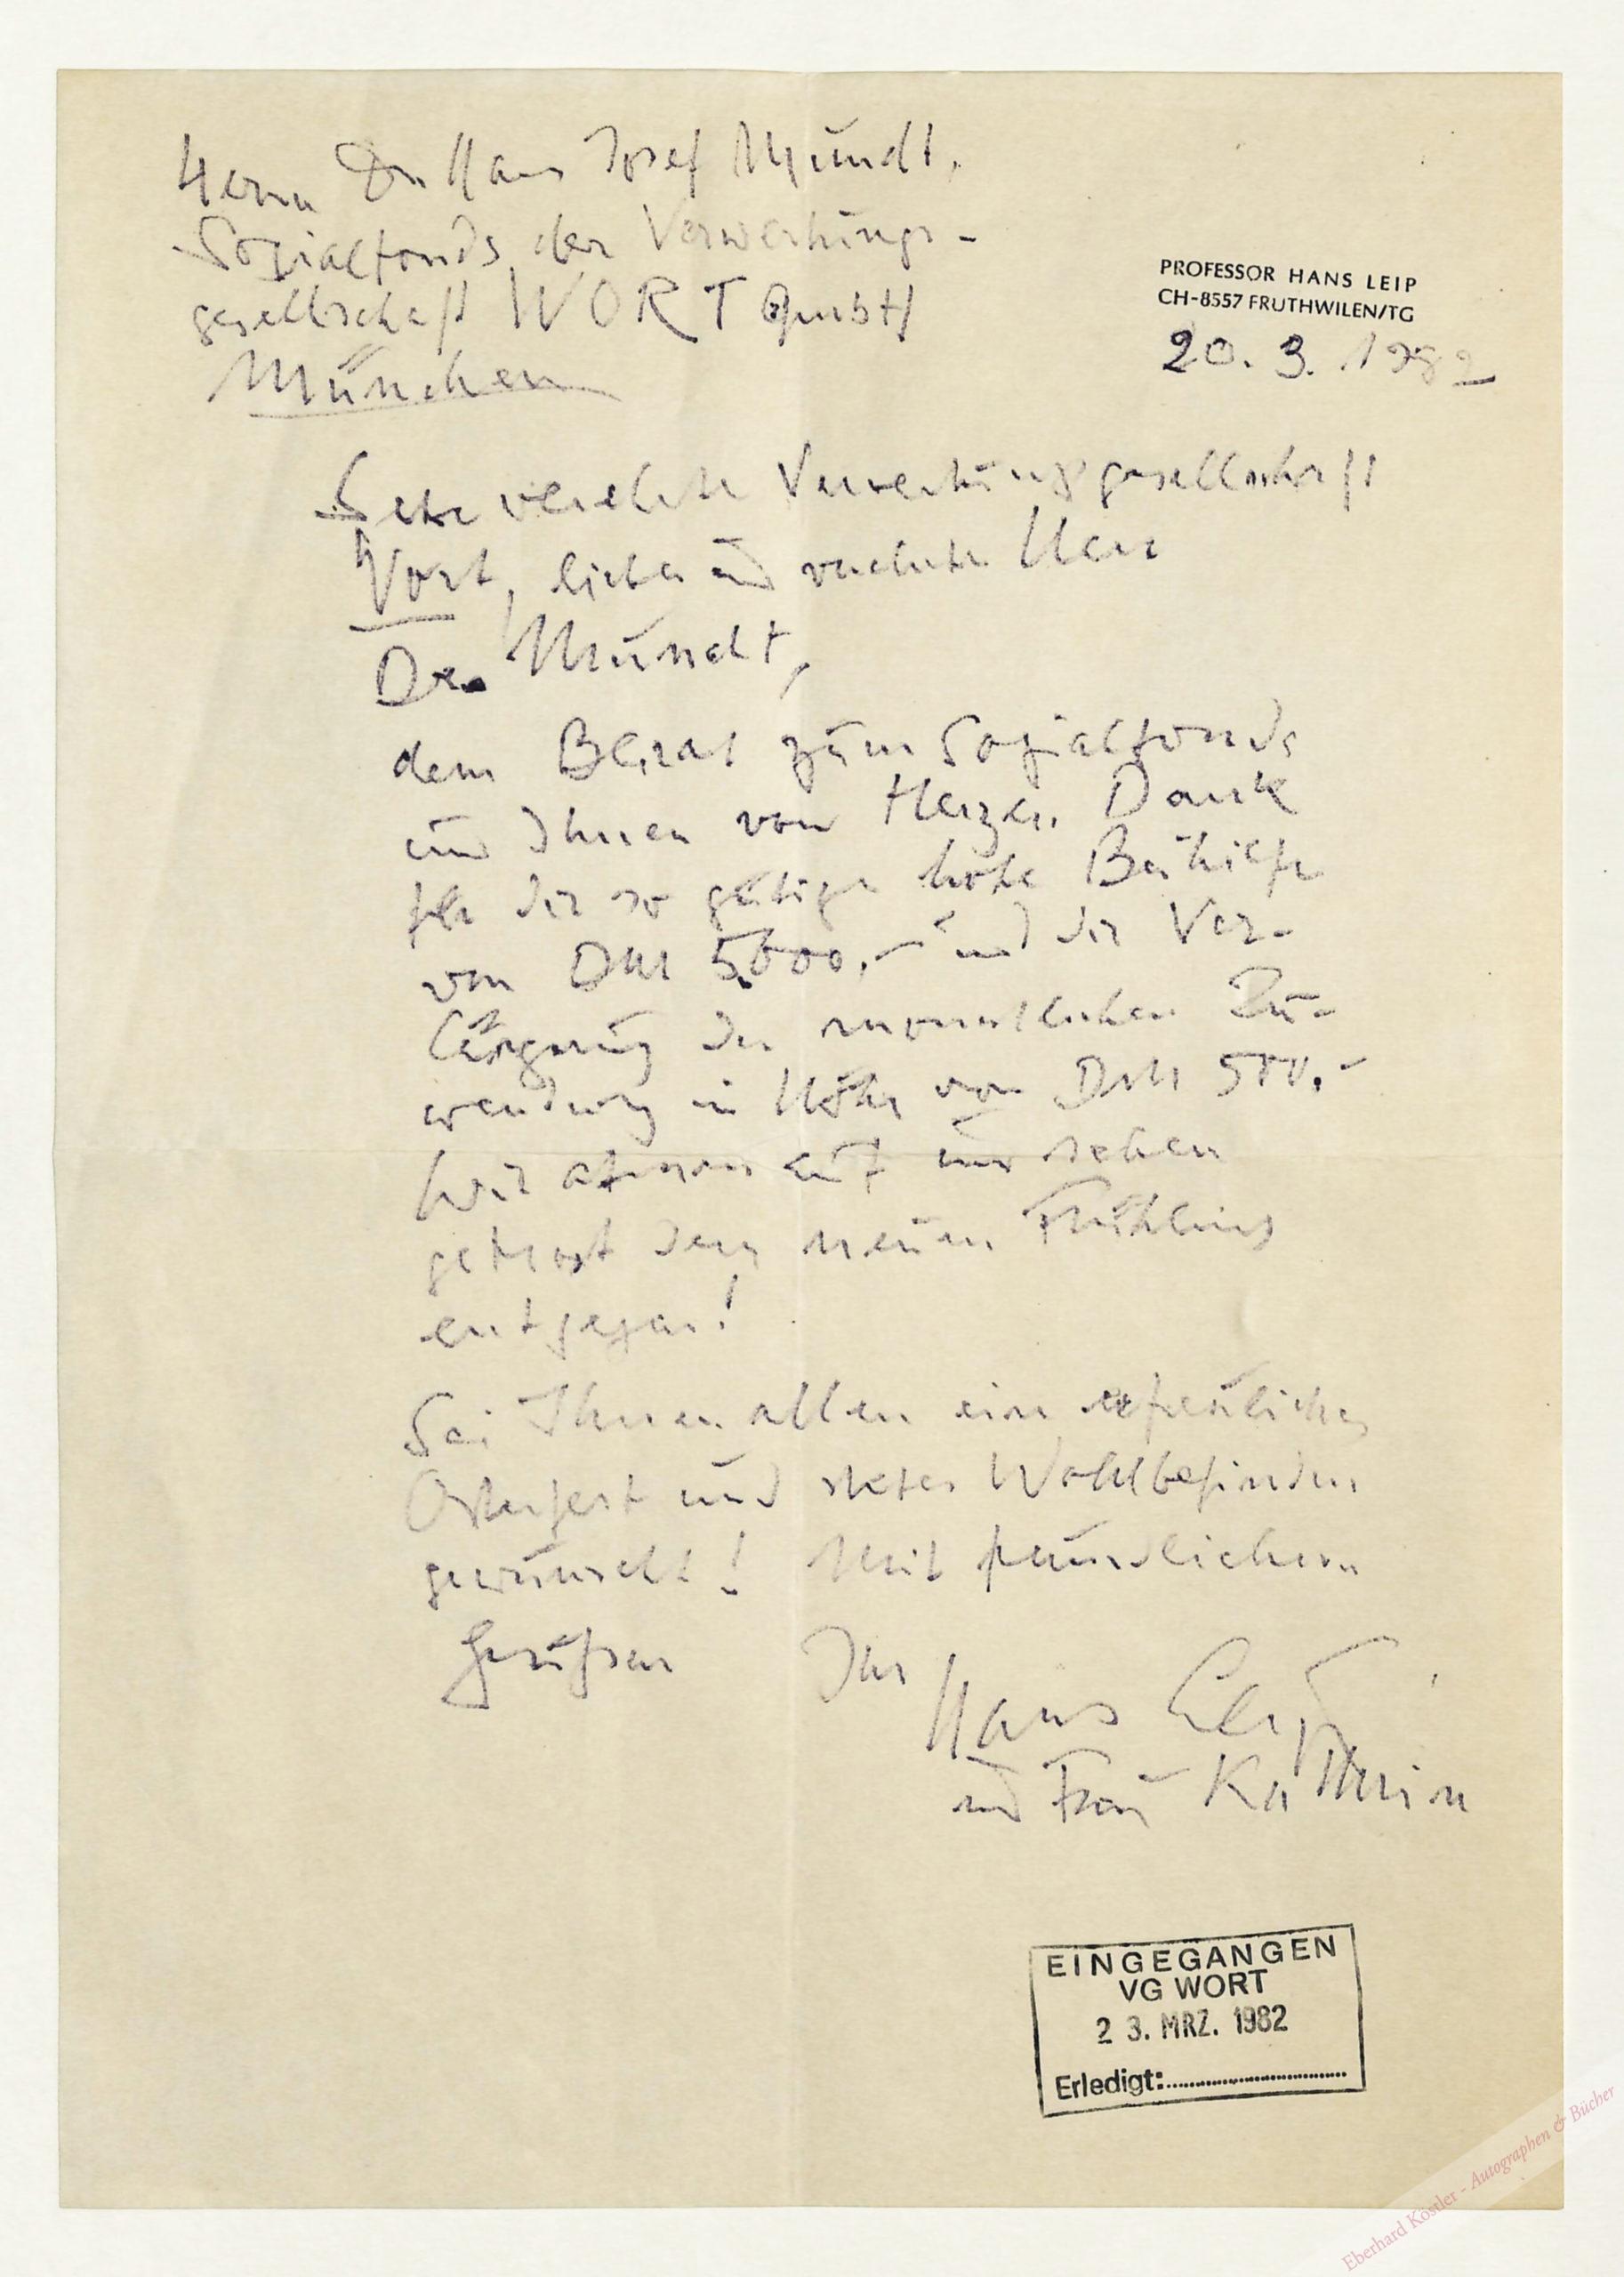 Herrn Dr. Hans Josef Mundt,
Sozialfonds der Verwertungs-
gesellschaft WORT GmbH
München
PROFESSOR HANS LEIP
CH-8557 FRUTHWILEN/TG
20. 3. 1982
Sehr verehrte Verwertungsgesellschaft
Wort, lieber und verehrter Herr
Dr. Mundt,
dem Beirat zum Sozialfonds
und Ihnen von Herzen Dank
für die so gütige hohe Beihilfe
von DM 5.000,- und die Ver-
längerung der monatlichen Zu-
wendung in Höhe von DM 500.-
Wir atmen auf und sehen
getrost dem neuen Frühling
entgegen!
Sei Ihnen allen ein erfreuliches
Osterfest und stetes Wohlbefinden
gewünscht! Mit freundlichen
Grüßen Ihr
Hans Leip
und Frau Kathrin
EINGEGANGEN
VG WORT
23. MRZ. 1982
Erledigt:
Eberhard Köstler - Autographen & Bücher